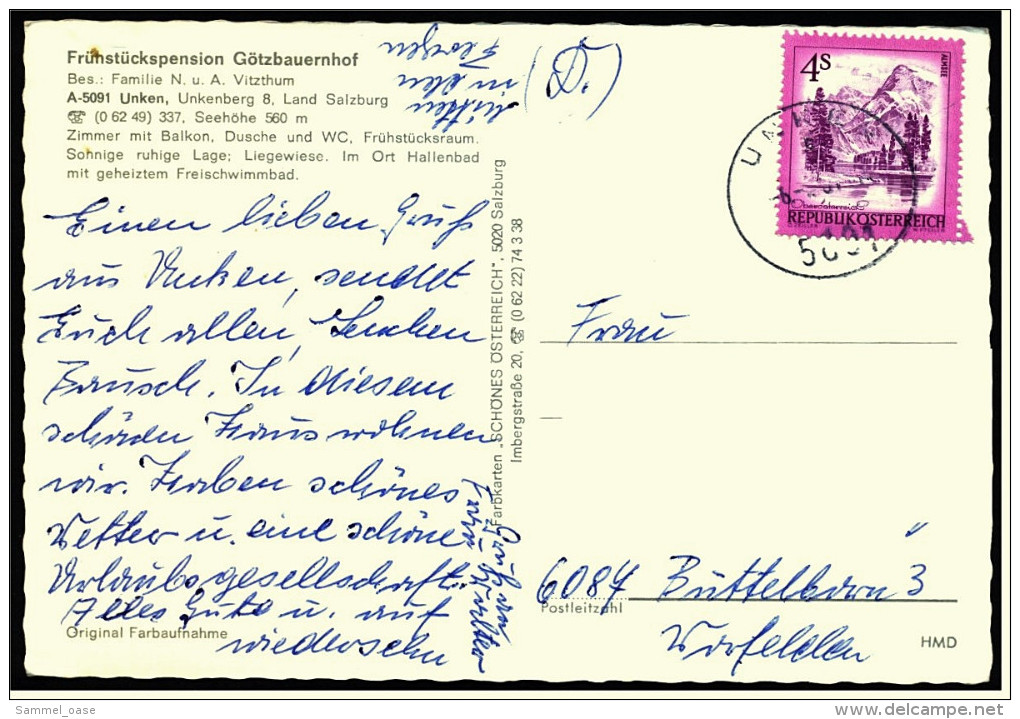 Frühstückspension Götzbauernhof
Bes.: Familie N. u. A. Vitzthum
A-5091 Unken, Unkenberg 8, Land Salzburg
☎ (0 62 49) 337, Seehöhe 560 m
Zimmer mit Balkon, Dusche und WC, Frühstücksraum.
Sohnige ruhige Lage; Liegewiese. Im Ort Hallenbad
mit geheiztem Freischwimmbad.
Einen lieben Gruß
aus Unken, sendet
Euch allen,
In diesem
schönen Haus wohnen
wir. Haben schönes
Wetter u. eine schöne
Urlaubsgesellschaft.
Alles Gute u. auf
wiedersehn
Original Farbaufnahme
in den
(D.)
Farbkarten „SCHÖNES ÖSTERREICH", 5020 Salzburg
Imbergstraße 20, ☎ (0 62 22) 74 3 38
4S
ALMSEE
Oberösterreich
REPUBLIK ÖSTERREICH
UNKEN
5091
Frau
6087 Büttelborn 3
Postleitzahl
Worfelden
HMD
Sammel_oase
www.delcampe.net